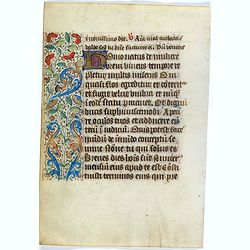 in novissimo die
Homo natus de muliere
brevi vivens tempore re
pletur multis miserijs Qui
quasi flos egreditur et conterit
et fugit velut umbra et nunq̃
in eodẽ statu permanet Et dignũ
ducis super huiuscemodi Ape
rire oculos tuos et adducere eũ
tecũ ĩ iudiciũ Quis potest face
mũdũ de ĩmũdo conceptũ se
mine Nõne tu qui solus es
breves dies hoĩs sũt Numer
mensiũ eius apud te est Cõsti
tuisti terminos eius qui pre